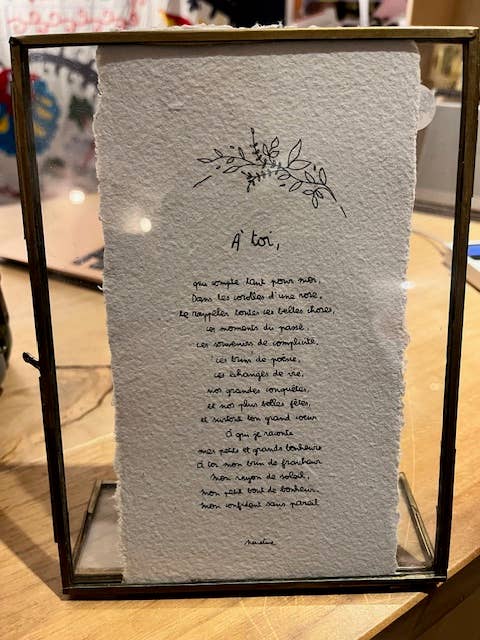 À toi,
qui compte tant pour moi,
Dans les corolles d'une rose,
te rappeler toutes ces belles choses,
ces moments du passé
ces souvenirs de complicité,
ces brins de poésie,
ces échanges de vie,
nos grandes conquêtes,
et nos plus belles fêtes,
et surtout ton grand coeur
à qui je raconte
mes petits et grands bonheurs
à toi mon brin de fraîcheur
mon rayon de soleil,
mon petit bout de bonheur
mon confident sans pareil